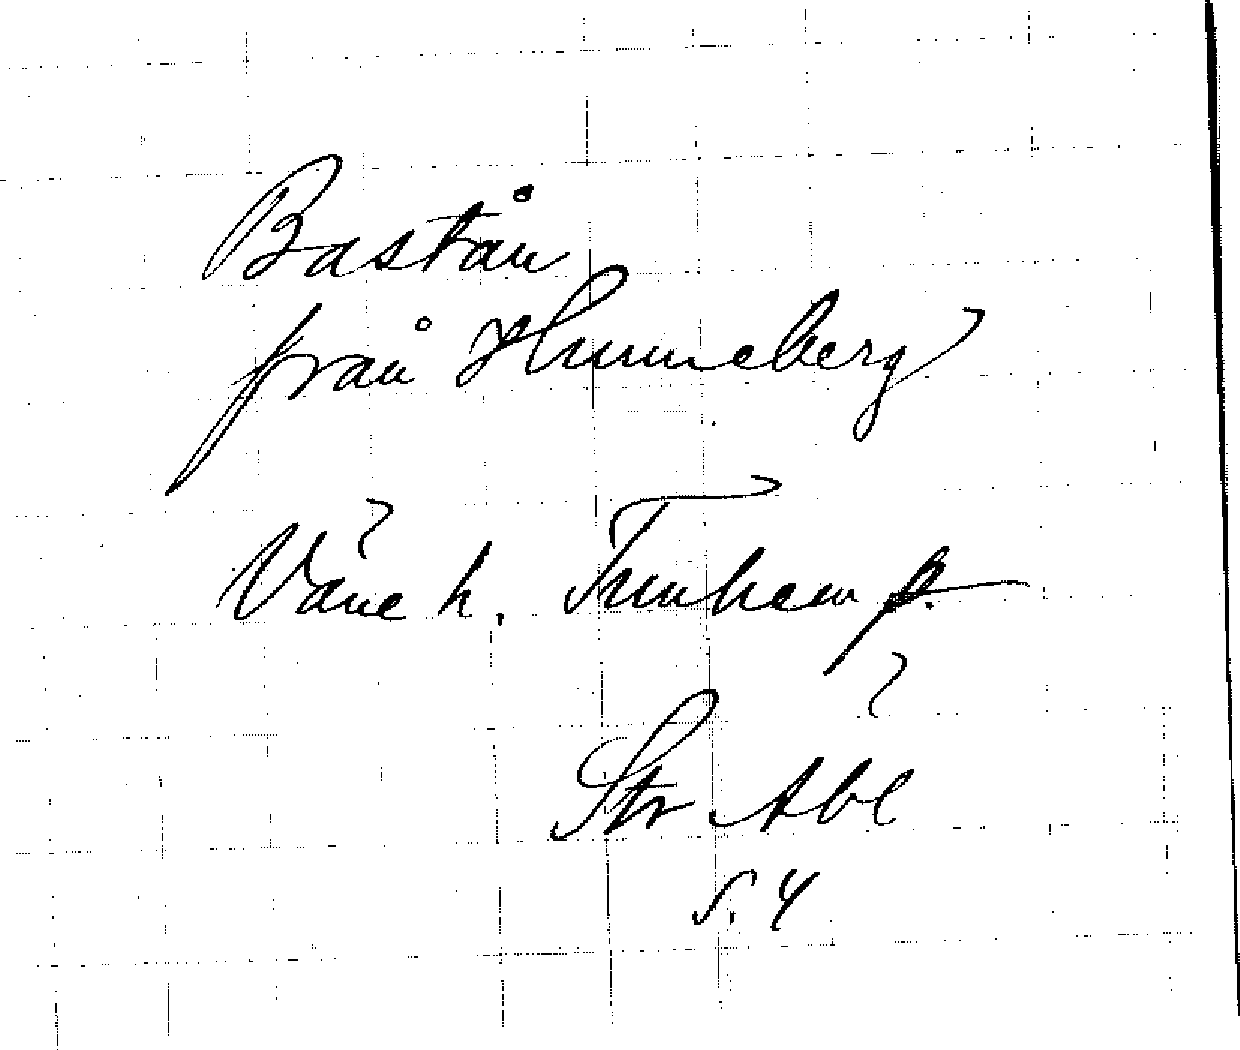 Bastån
från Hunneberg
Väne h. Tunhem p.
Str Abl
s. 4